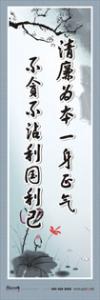 清廉为本一身正气
不贪不沾利国利己